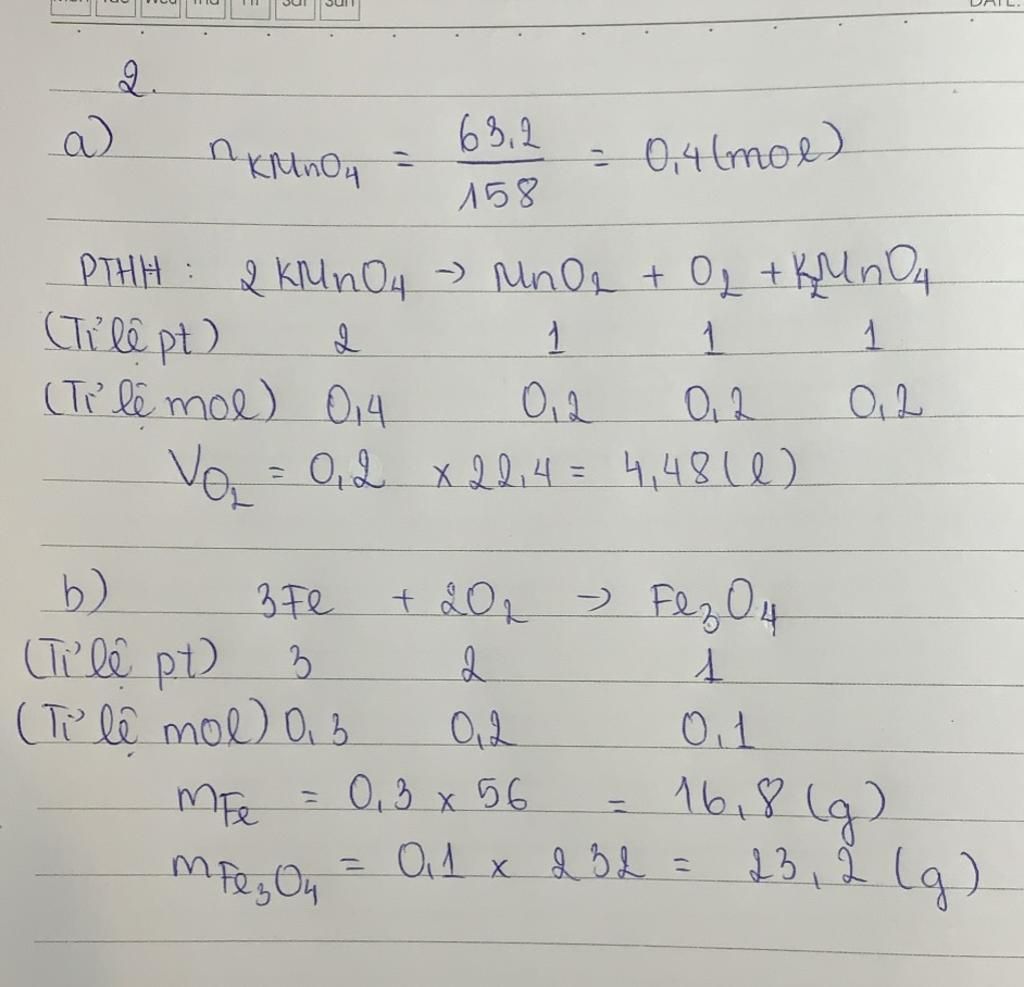 2.
a) nKMnO4 = 63,2/158 = 0,4 (mol)
PTHH : 2 KMnO4 → MnO2 + O2 + K2MnO4
(Tỉ lệ pt) 2 1 1 1
(Tỉ lệ mol) 0,4 0,2 0,2 0,2
VO2 = 0,2 x 22,4 = 4,48 (l)
b) 3Fe + 2O2 → Fe3O4
(Tỉ lệ pt) 3 2 1
(Tỉ lệ mol) 0,3 0,2 0,1
mFe = 0,3 x 56 = 16,8 (g)
mFe3O4 = 0,1 x 232 = 23,2 (g)